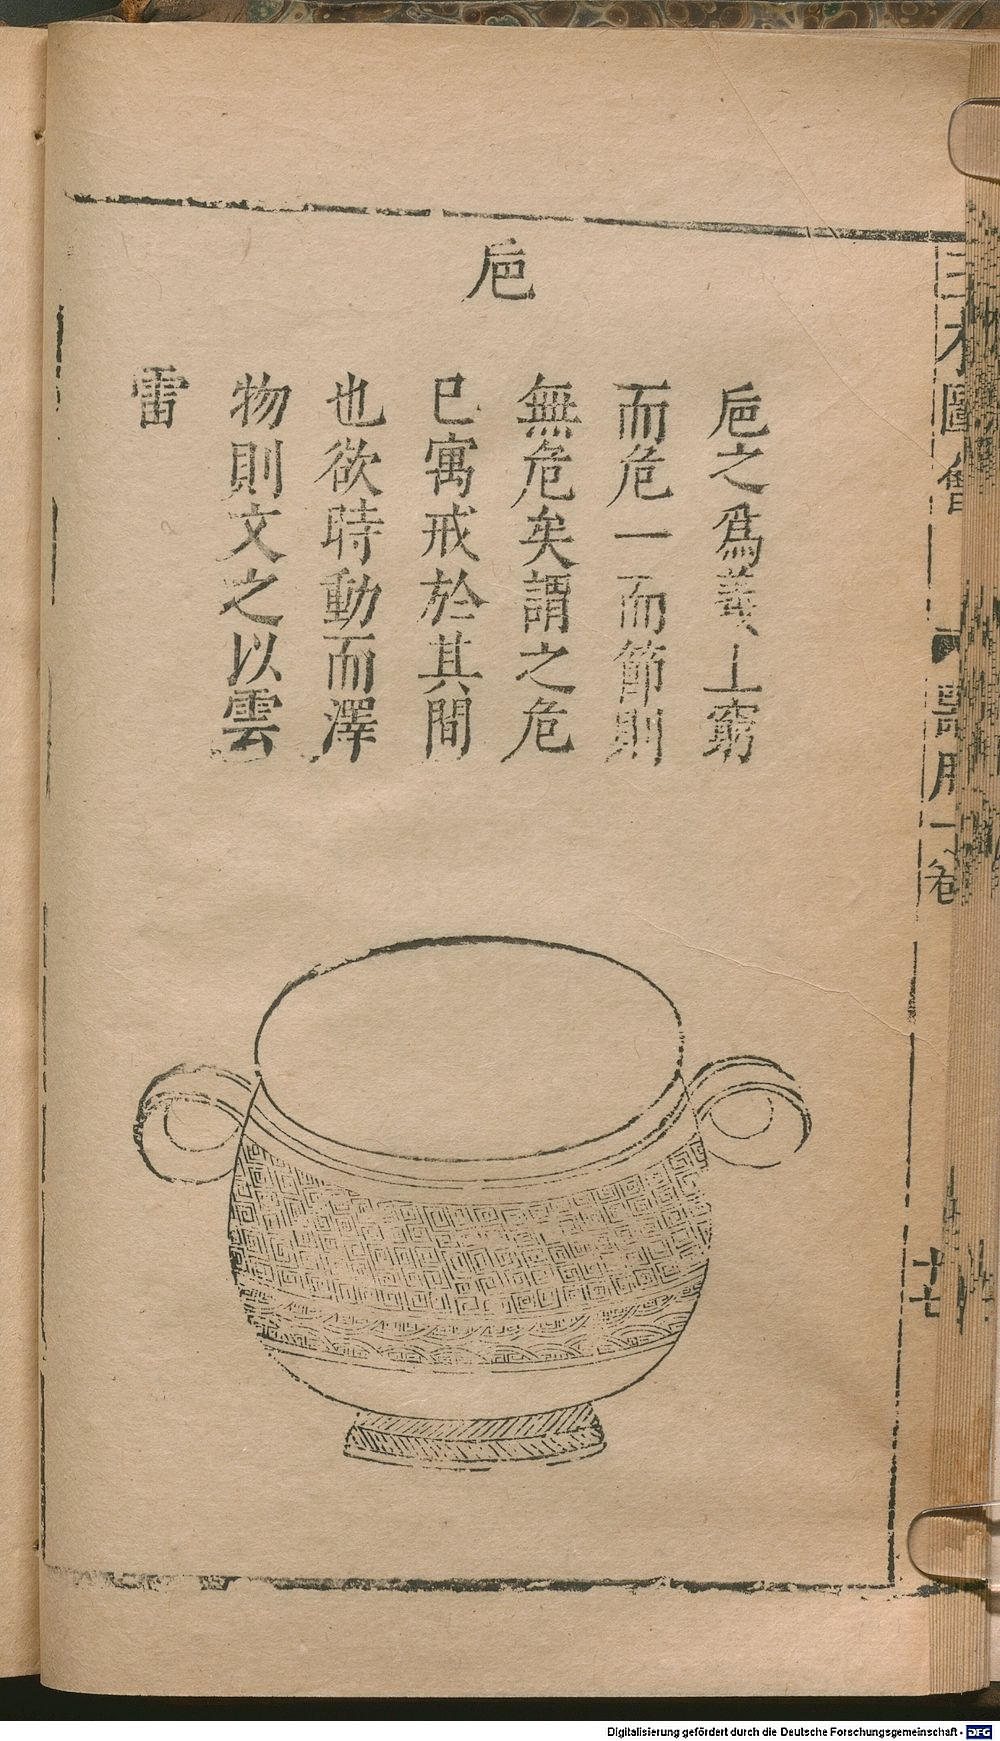 巵
巵之爲義上窮
而危一而節則
無危矣謂之危
巳寓戒於其間
也欲時動而澤
物則文之以雲
雷
圖會
器用一卷
十七
Digitalisierung gefördert durch die Deutsche Forschungsgemeinschaft - DFG